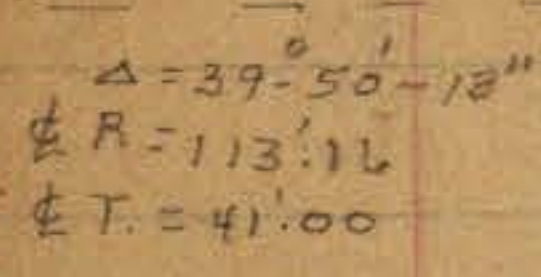 Δ = 39°-50'-12"
℄ R = 113'.16
℄ T. = 41'.00